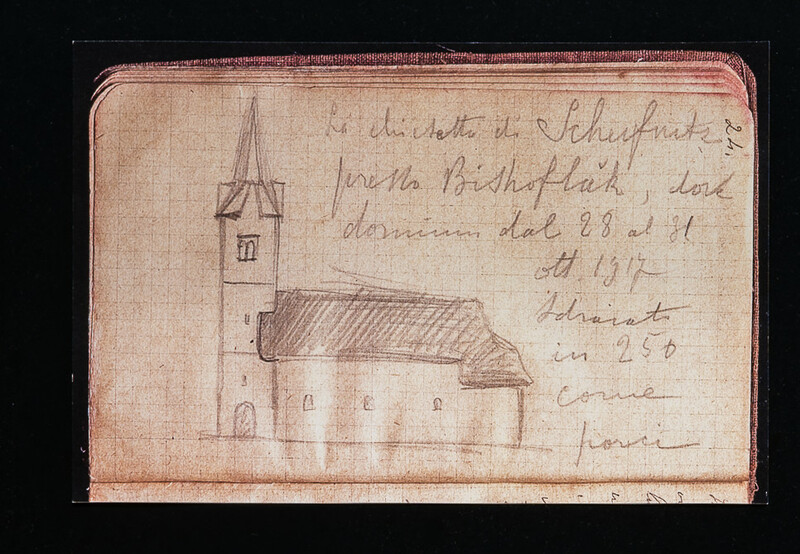 La chiesetta di Scheifnitz
presso Bishoflák, dove
dormimm dal 28 al 31
ott. 1917
sdraiati
in 250
come
porci
24.